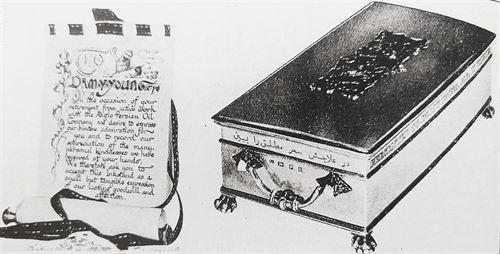 TO
DR M.Y. YOUNG
On the occasion of your
retirement from active work
with the Anglo Persian Oil
Company we desire to express
our sincere admiration for
you and to record our
appreciation of the many
personal kindnesses we have
received at your hands.
We therefore ask you to
accept this Inkstand as a
small but tangible expression
of our lasting goodwill and
affection.
در علاجش سحر مطلق را ببین